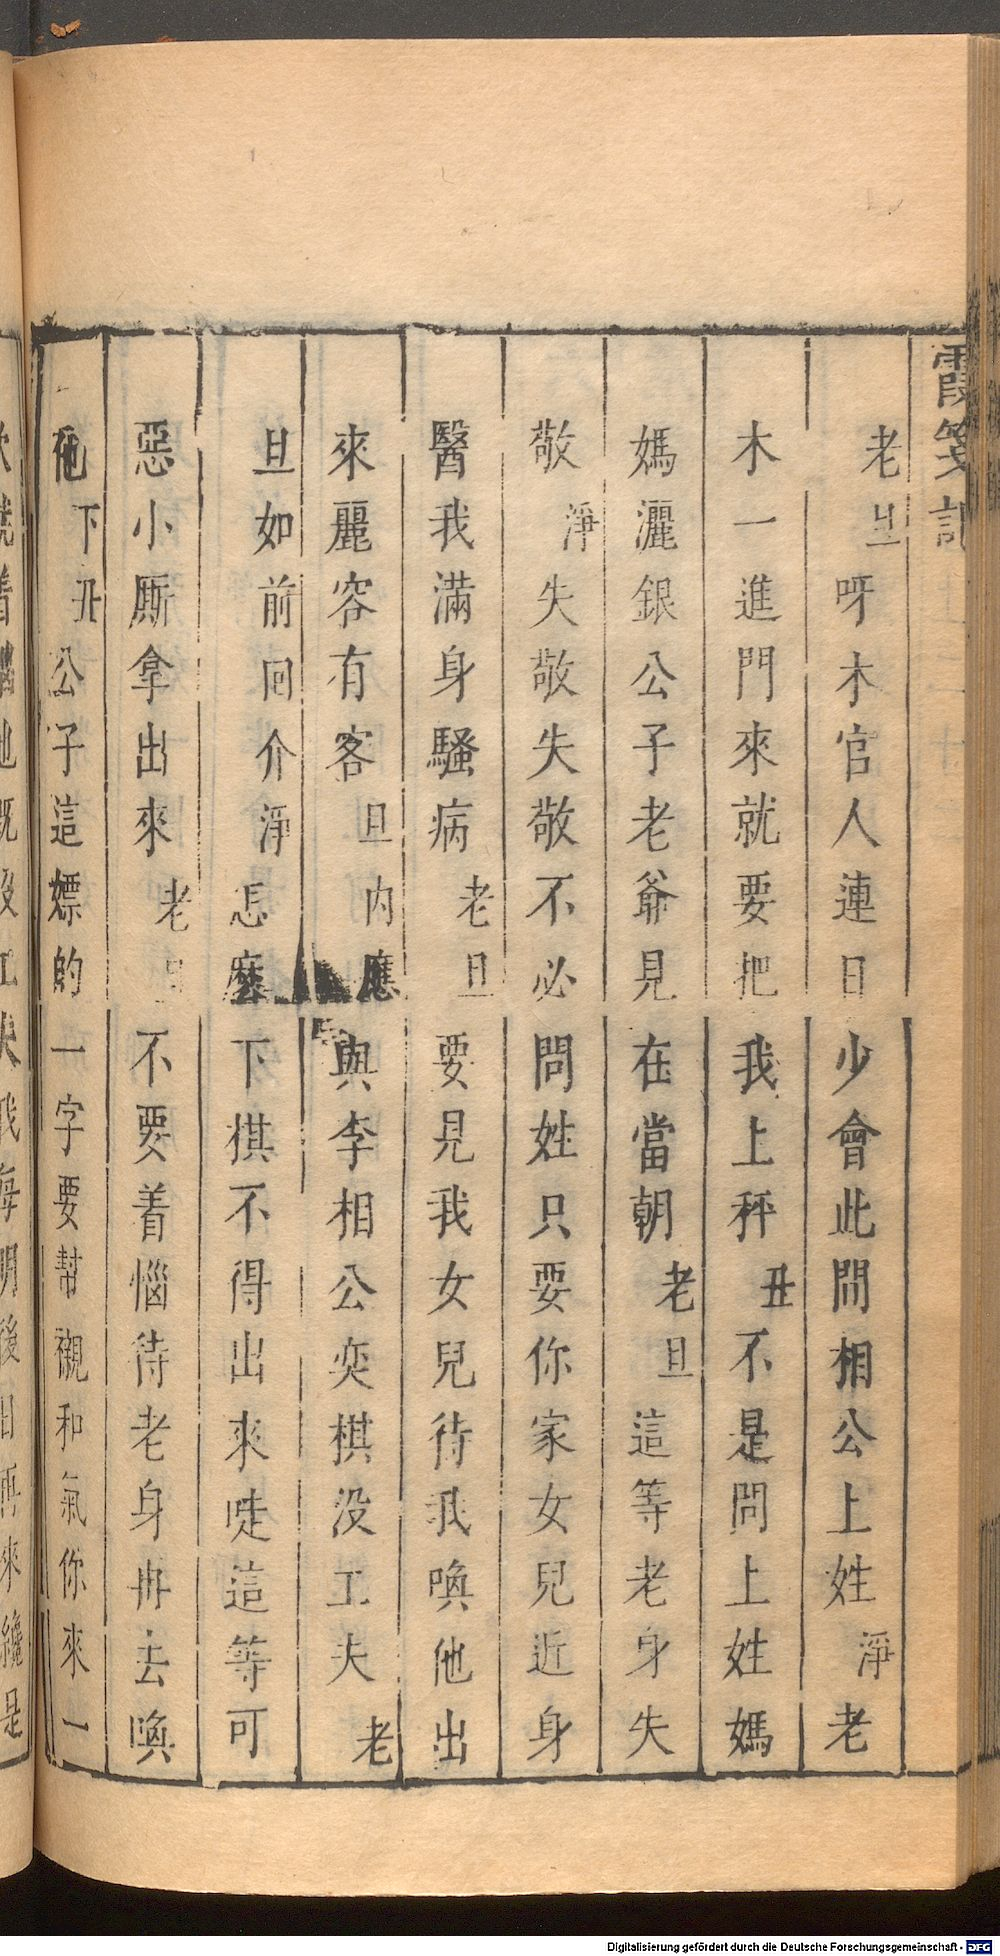 霞箋記
老旦呀木官人連日少會此間相公上姓淨老
木一進門來就要把我上秤丑不是問上姓媽
媽灑銀公子老爺見在當朝老旦這等老身失
敬淨失敬失敬不必問姓只要你家女兒近身
醫我滿身騷病老旦要見我女兒待我喚他出
來麗容有客旦內應與李相公奕棋没工夫老
旦如前回介淨怎麼下棋不得出來唗這等可
惡小厮拿出來老旦不要着惱待老身再去喚
他下丑公子這嫖的一字要幫襯和氣你來一
Digitalisierung gefördert durch die Deutsche Forschungsgemeinschaft - DFG